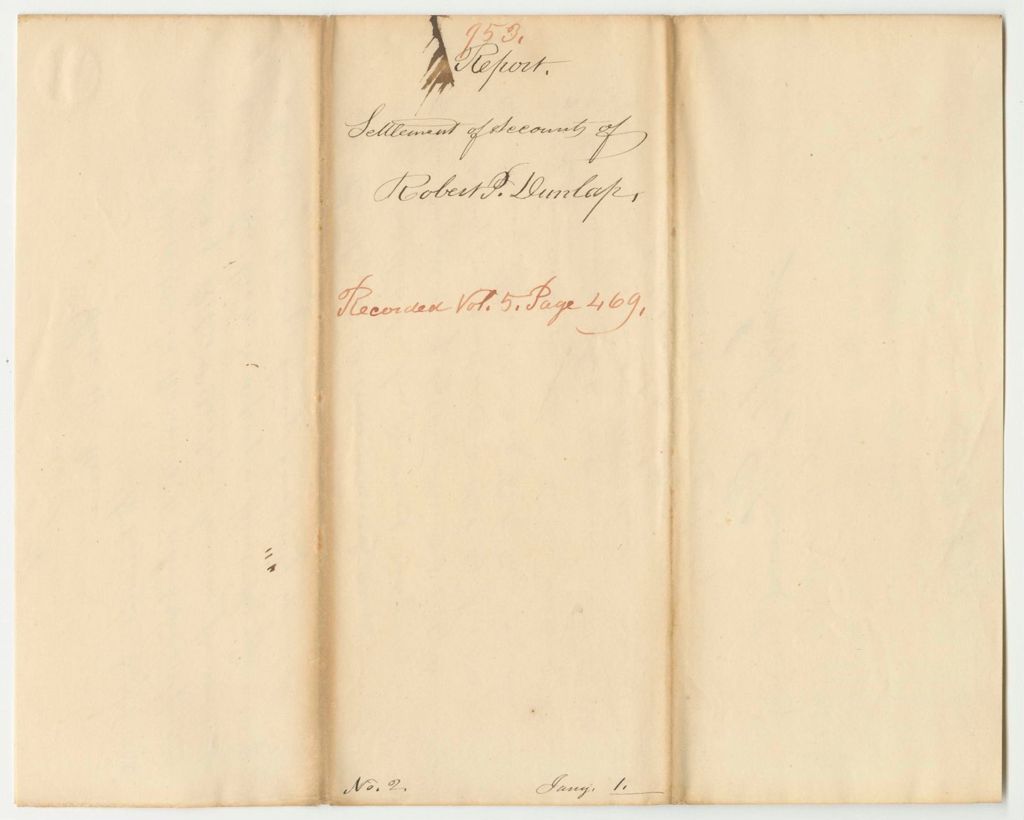 953.
Report.
Settlement of Accounts of
Robert P. Dunlap,
Recorded Vol. 5. Page 469.
No. 2. Jany. 1.